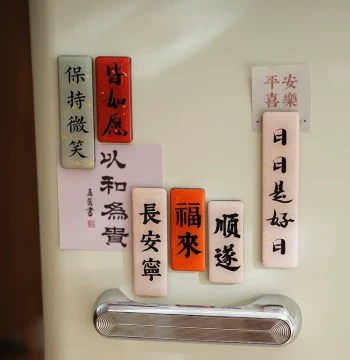 保持微笑
皆如愿
平安
喜樂
日日是好日
以和為貴
長安寧
福來
順遂